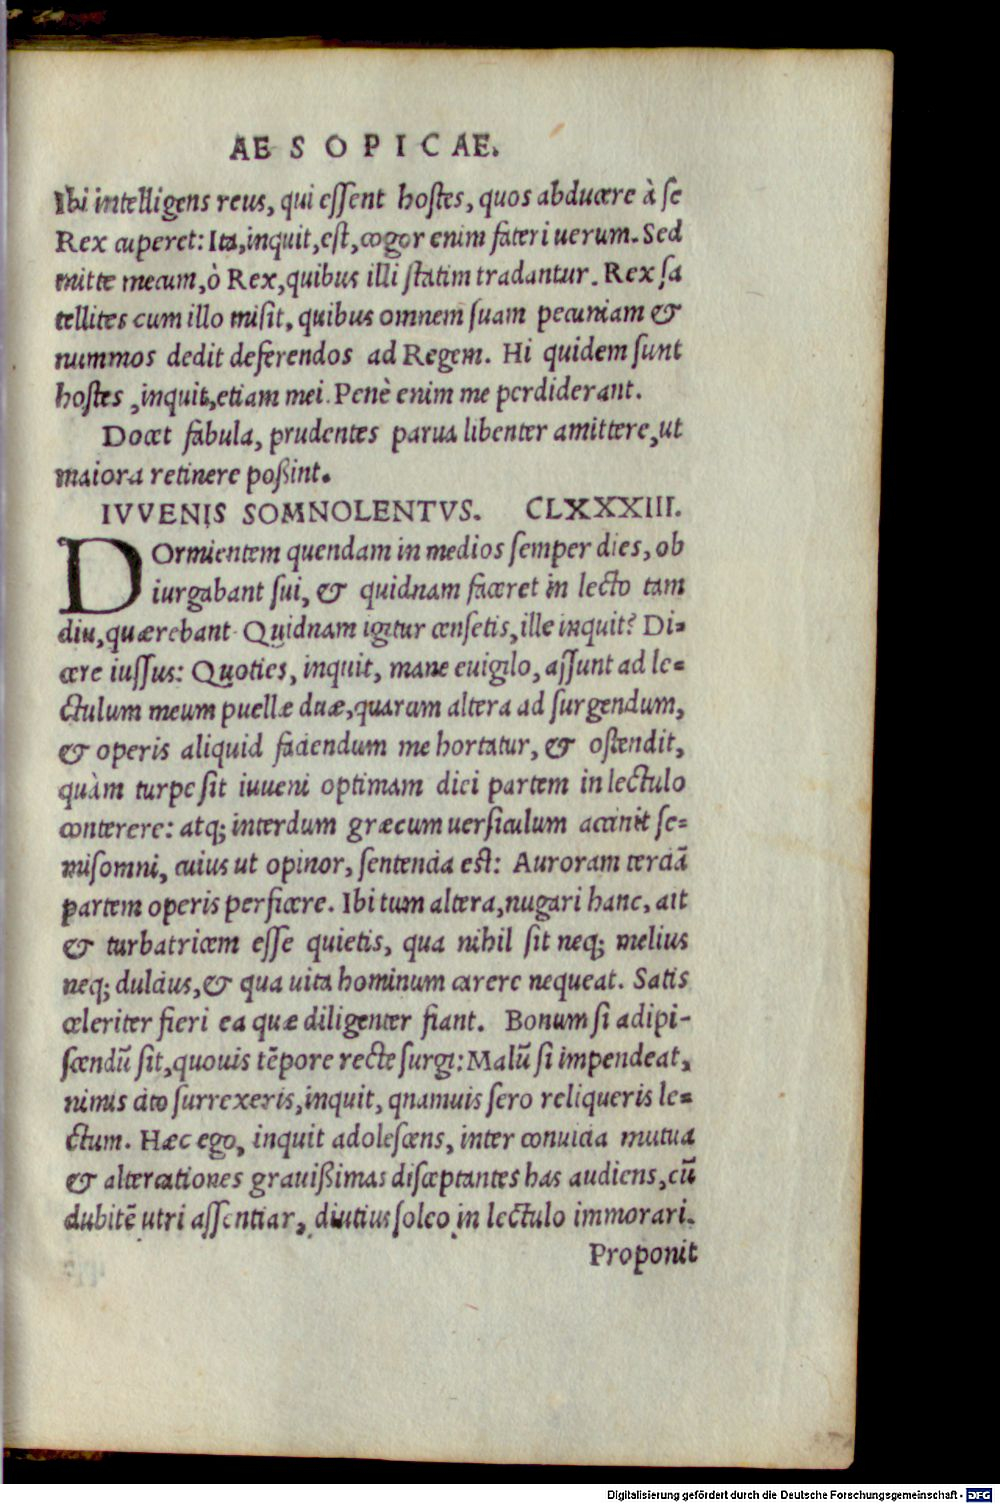 AESOPICAE.
Ibi intelligens reus, qui essent hostes, quos abducere à se
Rex cuperet: Ita, inquit, est, cogor enim fateri uerum. Sed
mitte mecum, ò Rex, quibus illi statim tradantur. Rex sa
tellites cum illo misit, quibus omnem suam pecuniam &
nummos dedit deferendos ad Regem. Hi quidem sunt
hostes, inquit, etiam mei. Penè enim me perdiderant.
Docet fabula, prudentes parua libenter amittere, ut
maiora retinere poßint.
IVVENIS SOMNOLENTVS. CLXXXIII.
DOrmientem quendam in medios semper dies, ob
iurgabant sui, & quidnam faceret in lecto tam
diu, quærebant. Quidnam igitur censetis, ille inquit? Di=
cere iussus: Quoties, inquit, mane euigilo, assunt ad le=
ctulum meum puellæ duæ, quarum altera ad surgendum,
& operis aliquid faciendum me hortatur, & ostendit,
quàm turpe sit iuueni optimam diei partem in lectulo
conterere: atq; interdum græcum uersiculum accinit se=
misomni, cuius ut opinor, sentencia est: Auroram terciã
partem operis perficere. Ibi tum altera, nugari hanc, ait
& turbatricem esse quietis, qua nihil sit neq; melius
neq; dulcius, & qua uita hominum carere nequeat. Satis
celeriter fieri ea quæ diligenter fiant. Bonum si adipi-
scendũ sit, quouis tẽpore recte surgi: Malũ si impendeat,
nimis cito surrexeris, inquit, qnamuis sero reliqueris le=
ctum. Hæc ego, inquit adolescens, inter conuicia mutua
& altercationes grauißimas disceptantes has audiens, cũ
dubitẽ utri assentiar, diutius soleo in lectulo immorari.
Proponit
Digitalisierung gefördert durch die Deutsche Forschungsgemeinschaft - DFG